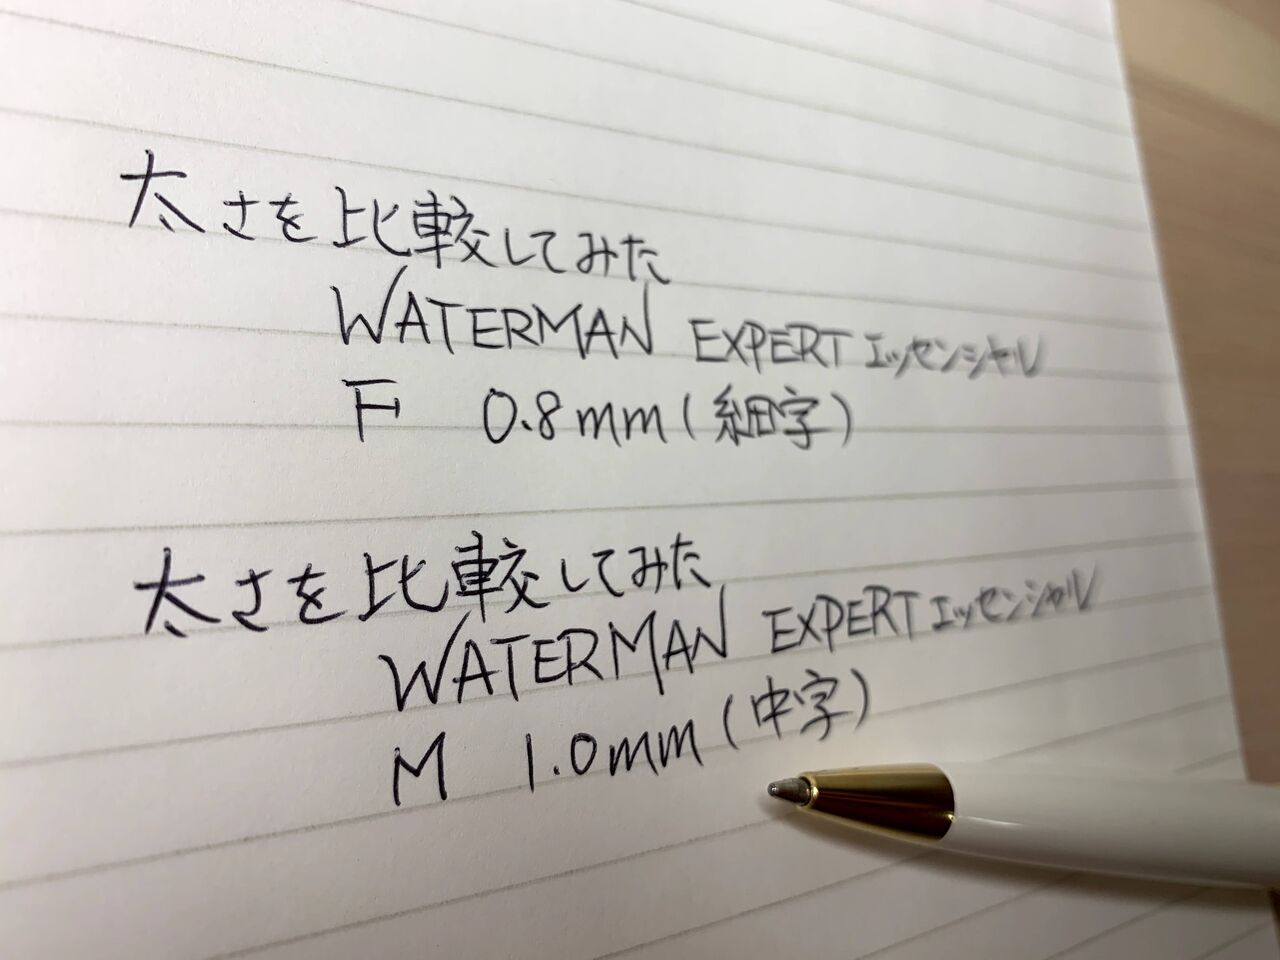 太さを比較してみた
WATERMAN EXPERT エッセンシャル
F 0.8mm (細字)
太さを比較してみた
WATERMAN EXPERT エッセンシャル
M 1.0mm (中字)